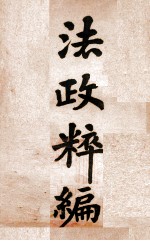 法政粹編